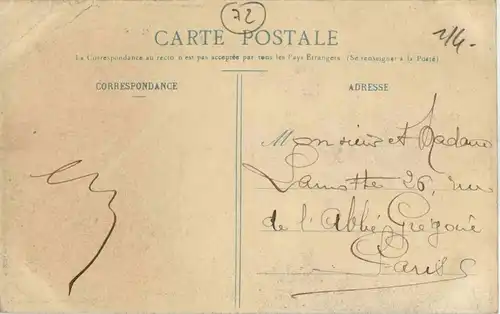 72
2/4.
CARTE POSTALE
La Correspondance au recto n'est pas acceptée par tous les Pays Etrangers. (Se renseigner à la Poste)
CORRESPONDANCE
ADRESSE
Monsieur et Madame
Lamotte 26, rue
de l'Abbé Grégoire
Paris